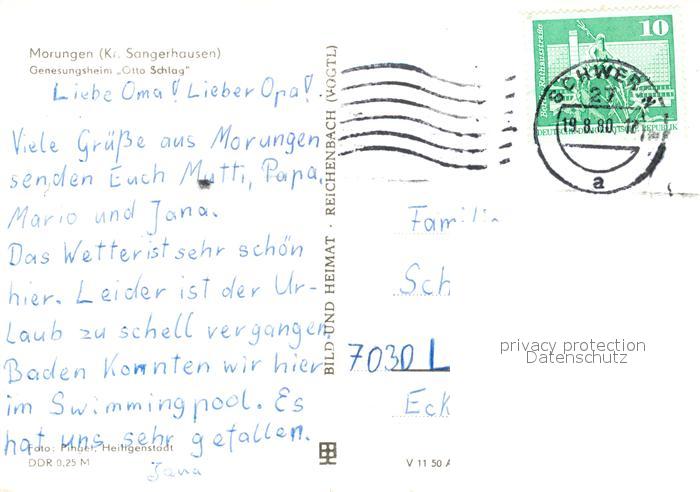 Morungen (Kr. Sangerhausen)
Genesungsheim „Otto Schlag"
Liebe Oma! Lieber Opa!
Viele Grüße aus Morungen
senden Euch Mutti, Papa,
Mario und Jana.
Das Wetter ist sehr schön
hier. Leider ist der Ur-
laub zu schell vergangen.
Baden Konnten wir hier
im Swimmingpool. Es
hat uns sehr gefallen.
Jana
Foto: Pingel, Heiligenstadt
DDR 0,25 M
BILD UND HEIMAT · REICHENBACH (VOGTL)
V 11 50 A
10
Rathausstraße
DEUTSCHE DEMOKRATISCHE REPUBLIK
SCHWERIN
27
19.8.80
a
Famili
Sch
7030 L
Eck
privacy protection
Datenschutz